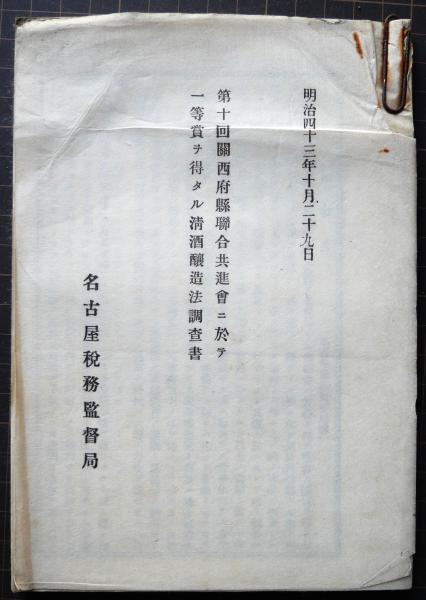 明治四十三年十月二十九日
第十回關西府縣聯合共進會ニ於テ
一等賞ヲ得タル淸酒釀造法調査書
名古屋稅務監督局